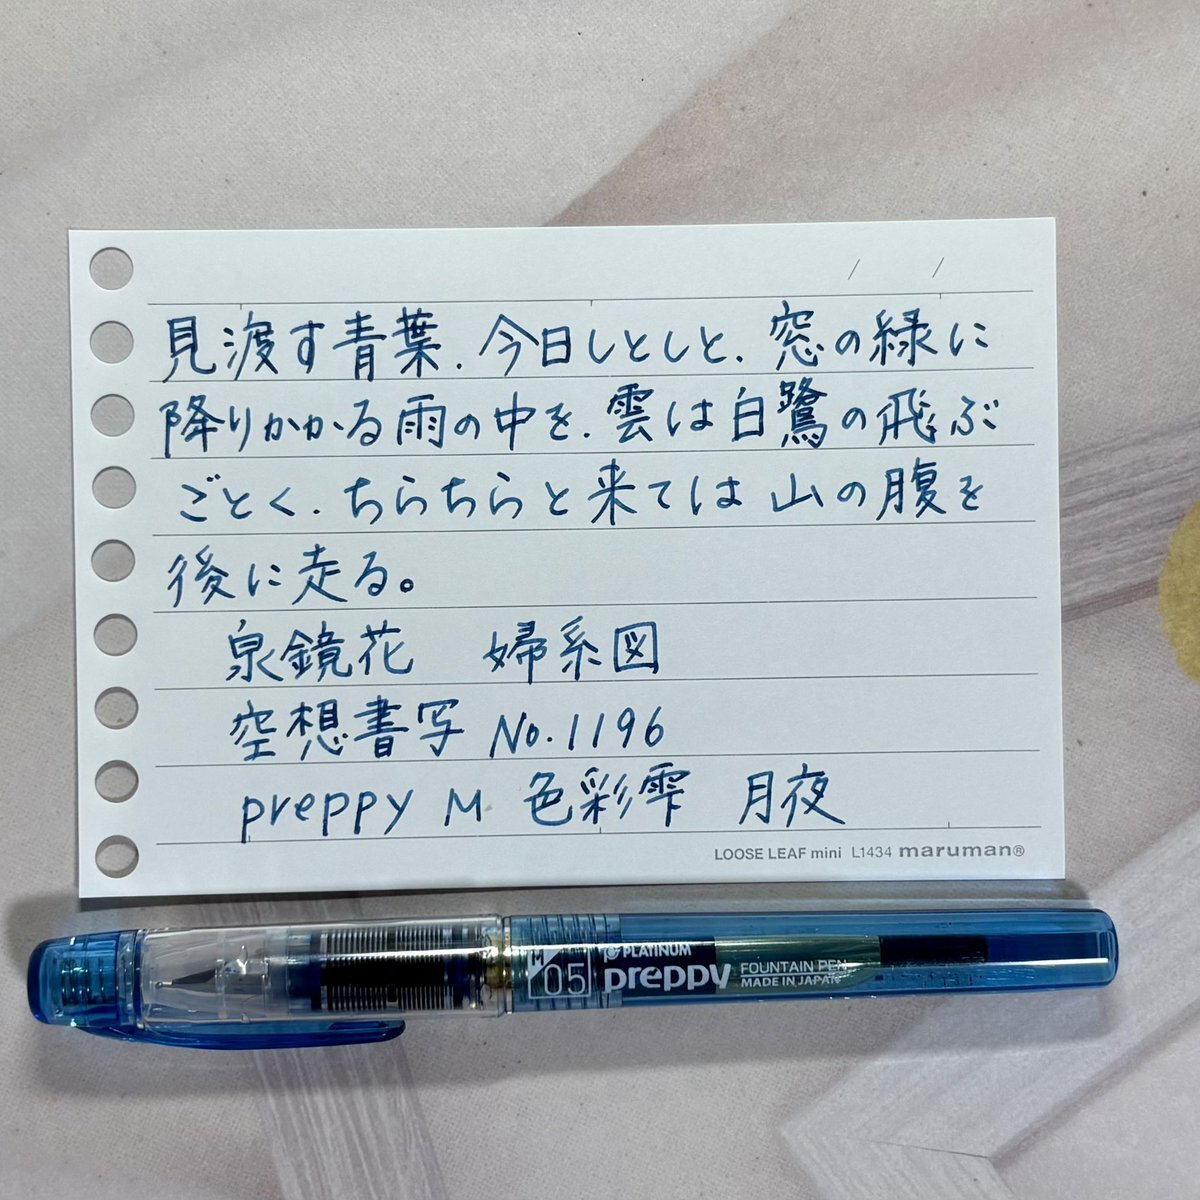 / /
見渡す青葉、今日しとしと、窓の緑に
降りかかる雨の中を、雲は白鷺の飛ぶ
ごとく、ちらちらと来ては山の腹を
後に走る。
泉鏡花 婦系図
空想書写 No.1196
preppy M 色彩雫 月夜
LOOSE LEAF mini L1434 maruman®
M 05 PLATINUM preppy FOUNTAIN PEN MADE IN JAPAN